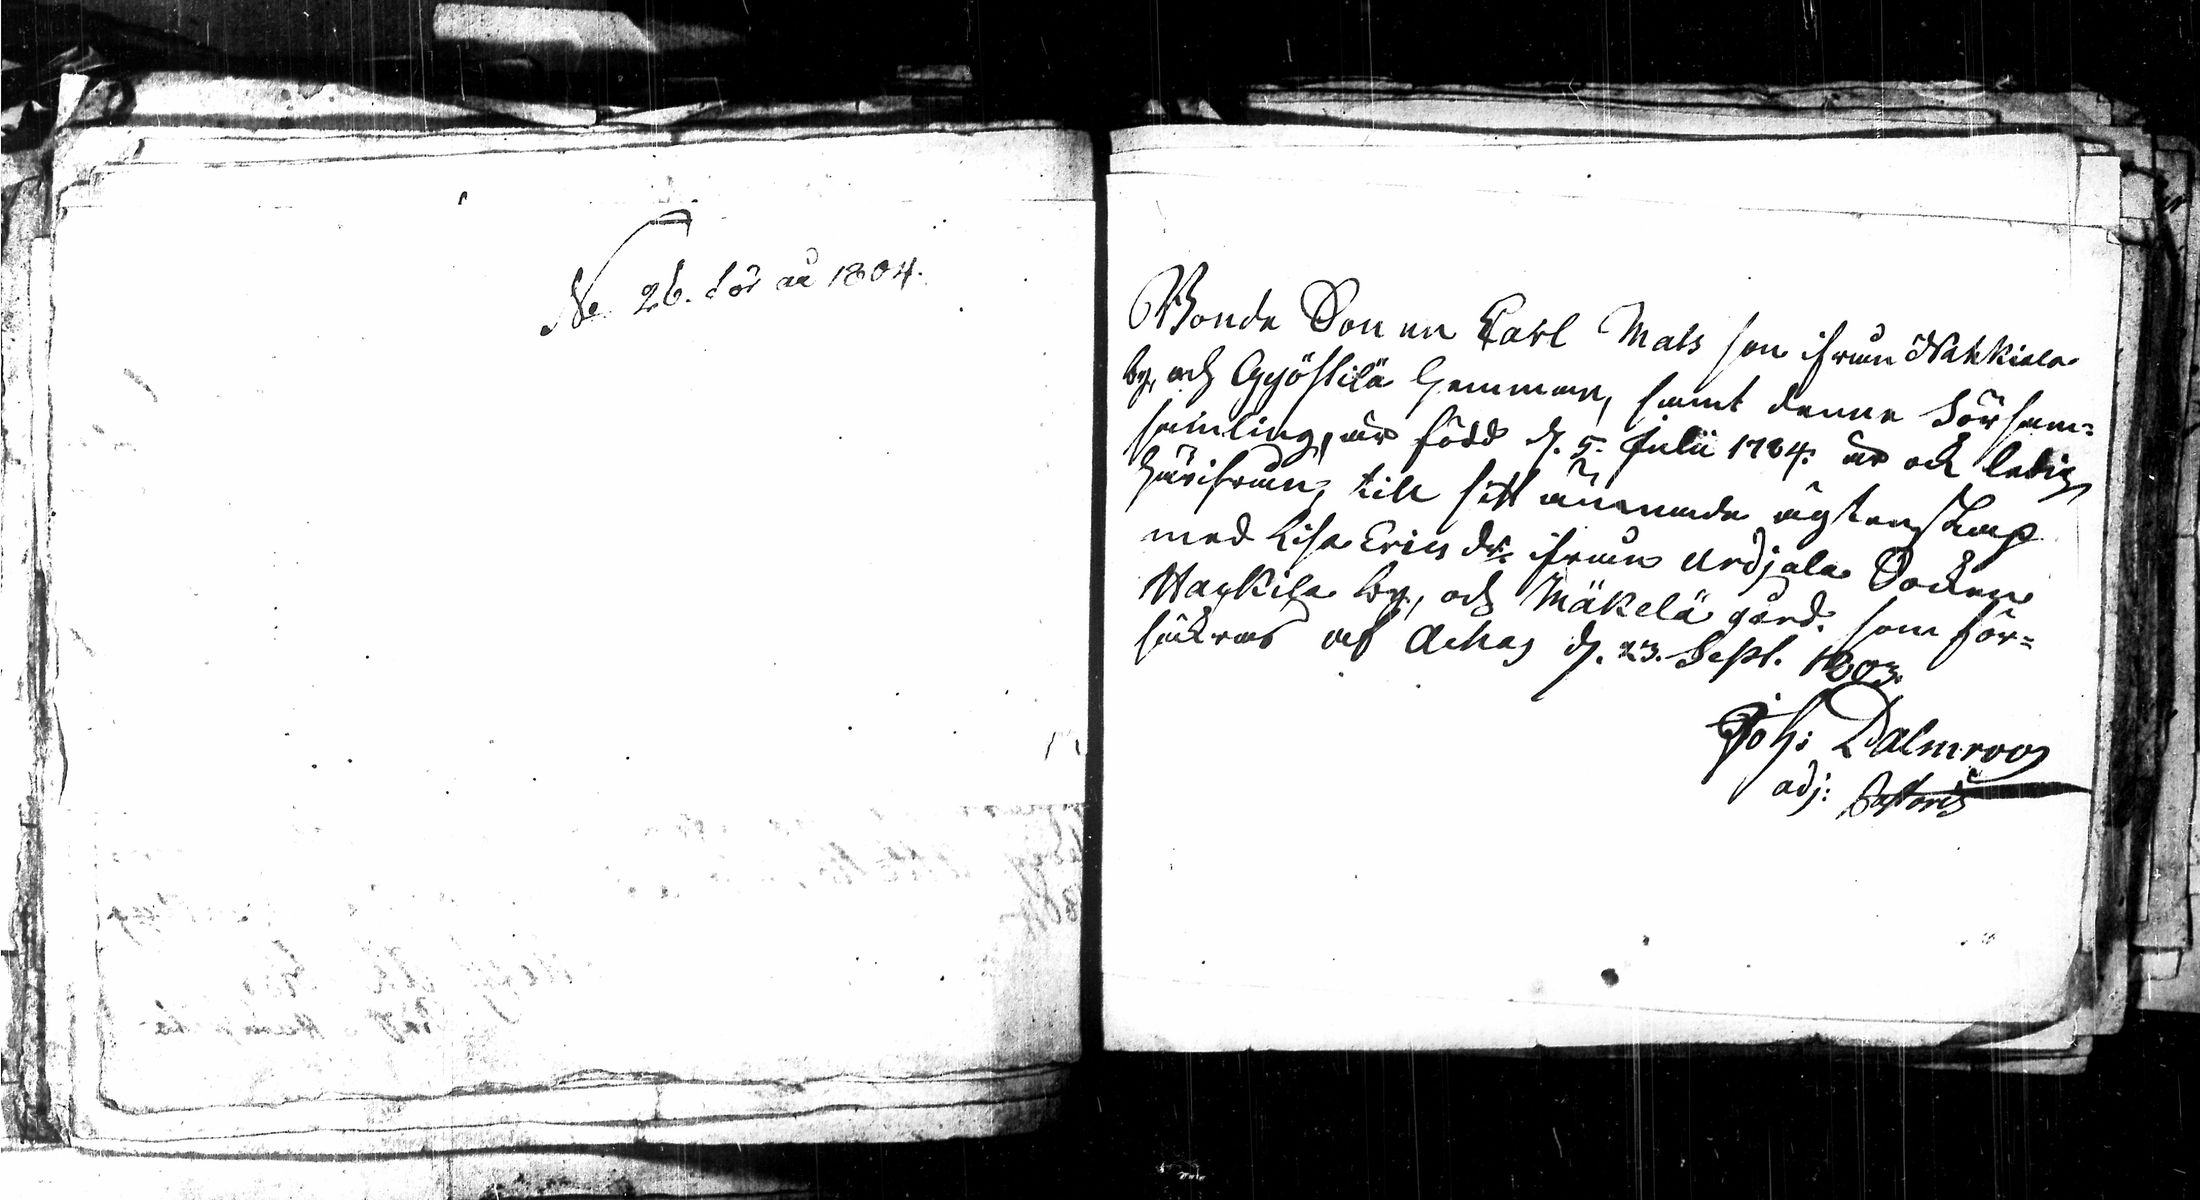 No 26. för år 1804.
Bonde Sonen Carl Mats son ifrån Nahkiala
by, och Gyöstilä Hemman, samt denne Försam=
samling, är född d. 5. Julii 1784. är och ledig
härifrån, till sitt ämnade ägtenskap
med Lisa Erics dr: ifrån Urdjala Socken
Haukila by, och Mäkelä gård. som för=
säkras af Achas d. 23. Sept. 1803.
Joh: Dalmroos
adj: Pastoris